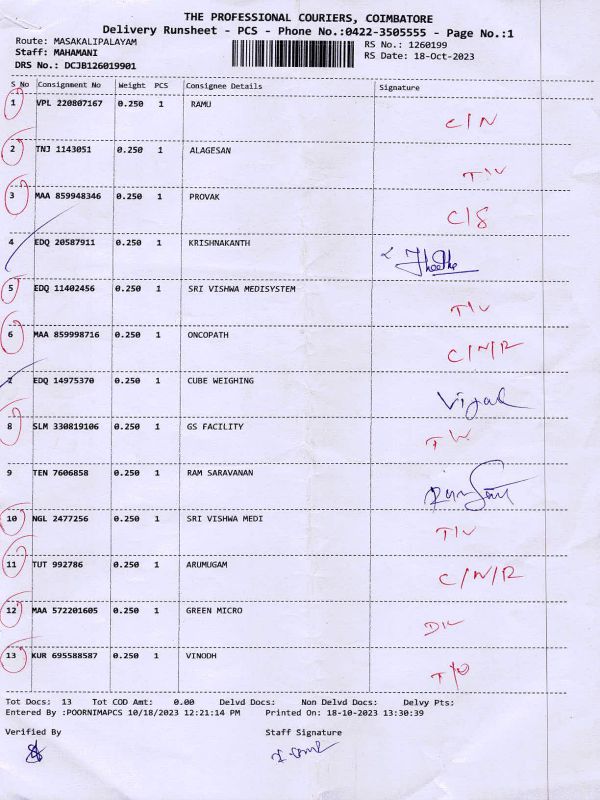 THE PROFESSIONAL COURIERS, COIMBATORE
Delivery Runsheet - PCS - Phone No.:0422-3505555 - Page No.:1
Route: MASAKALIPALAYAM RS No.: 1260199
Staff: MAHAMANI RS Date: 18-Oct-2023
DRS No.: DCJB126019901
S No Consignment No Weight PCS Consignee Details Signature
1 VPL 220807167 0.250 1 RAMU C/N
2 TNJ 1143051 0.250 1 ALAGESAN
3 MAA 859948346 0.250 1 PROVAK C/S
4 EDQ 20587911 0.250 1 KRISHNAKANTH
5 EDQ 11402456 0.250 1 SRI VISHWA MEDISYSTEM
6 MAA 859998716 0.250 1 ONCOPATH C/N/R
7 EDQ 14975370 0.250 1 CUBE WEIGHING
8 SLM 330819106 0.250 1 GS FACILITY
9 TEN 7606858 0.250 1 RAM SARAVANAN
10 NGL 2477256 0.250 1 SRI VISHWA MEDI
11 TUT 992786 0.250 1 ARUMUGAM C/N/R
12 MAA 572201605 0.250 1 GREEN MICRO
13 KUR 695588587 0.250 1 VINODH
Tot Docs: 13 Tot COD Amt: 0.00 Delvd Docs: Non Delvd Docs: Delvy Pts:
Entered By :POORNIMAPCS 10/18/2023 12:21:14 PM Printed On: 18-10-2023 13:30:39
Verified By Staff Signature